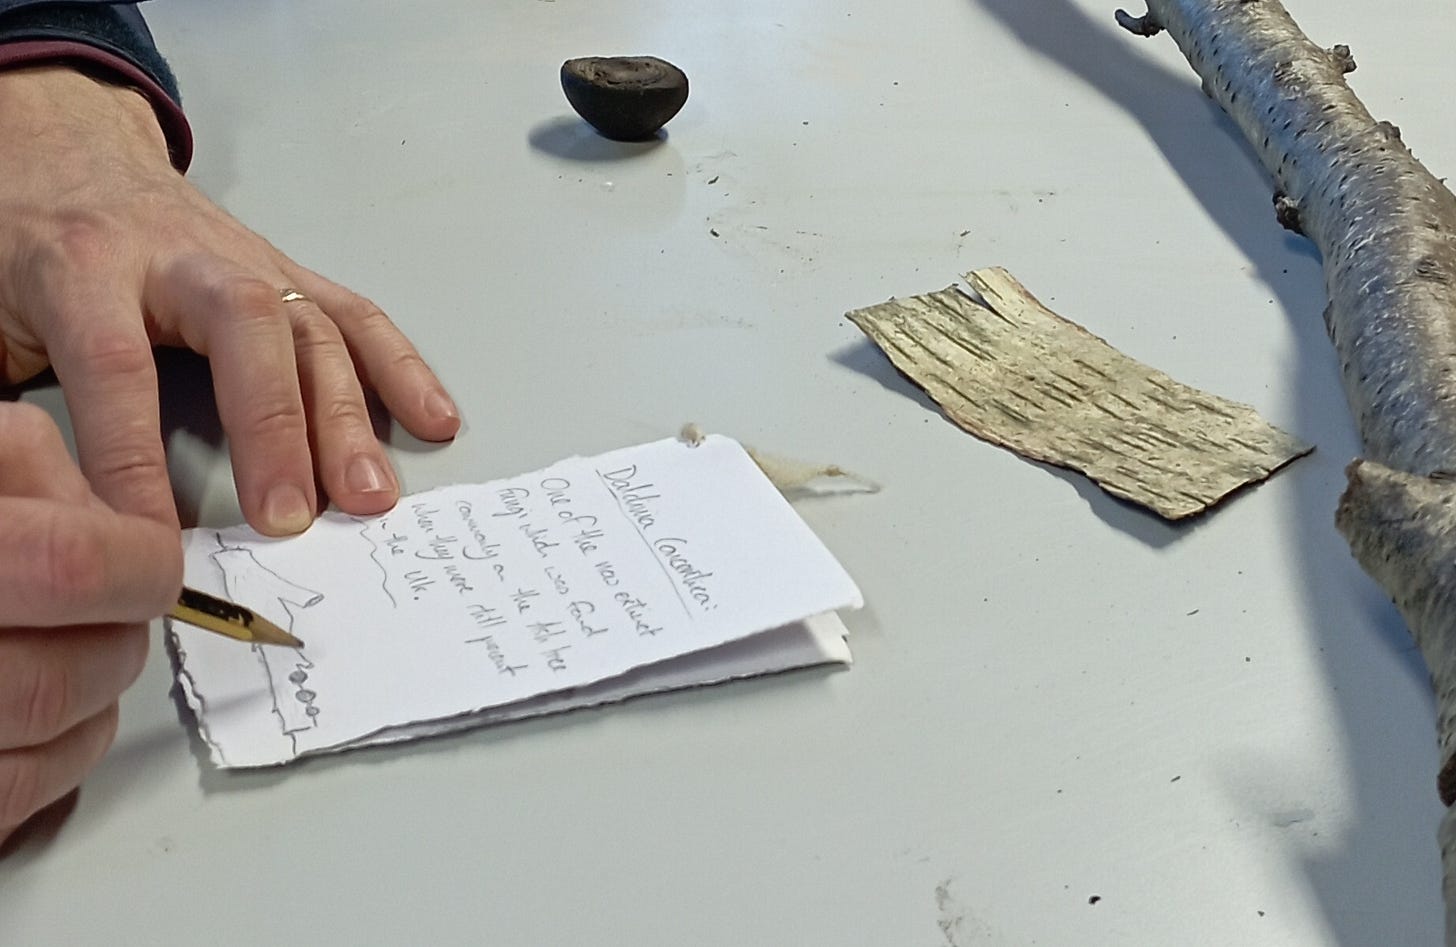 Daldinia Concentrica:
One of the now extinct
fungi which was found
commonly on the Ash tree
when they were still present
in the UK.